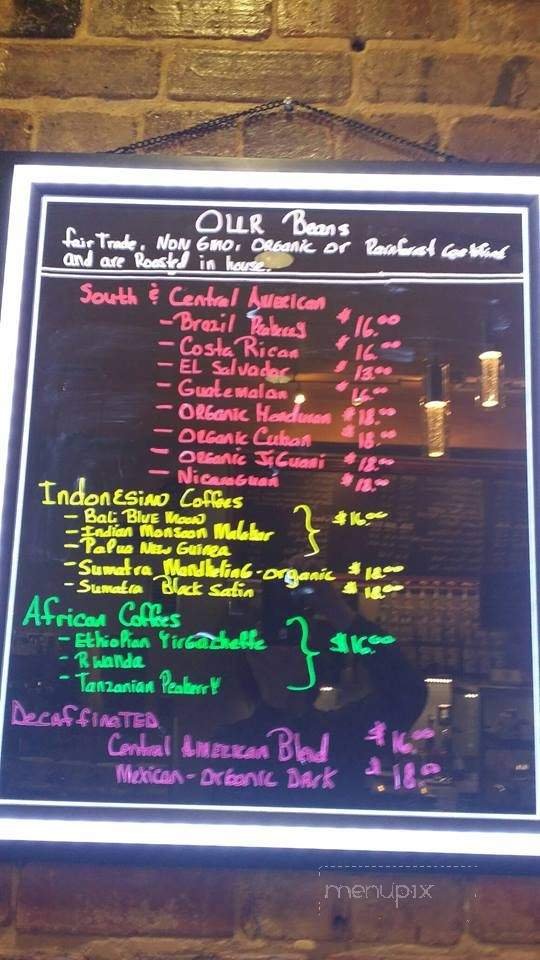 OUR Beans
fair Trade, NON GMO, ORGANIC or Rainforest Certified
and are Roasted in house.
South & Central American
- Brazil Peaberry $16.00
- Costa Rican $16.00
- EL Salvador $13.00
- Guatemalan $16.00
- ORGANIC Honduran $18.00
- ORGANIC Cuban $18.00
- ORGANIC JiGuani $18.00
- Nicaraguan $18.00
Indonesian Coffees
- Bali Blue Moon
- Indian Monsoon Malabar } $16.00
- Papua New Guinea
- Sumatra Mandheling-organic $18.00
- Sumatra Black Satin $18.00
African Coffees
- Ethiopian Yirgacheffe
- Rwanda } $16.00
- Tanzanian Peaberry
Decaffinated
Central American Blend $16.00
Mexican-Organic Dark $18.00
menupix